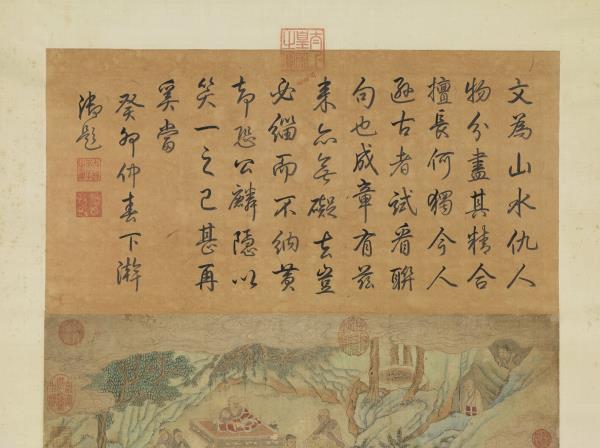 文為山水仇人
物分盡其精合
擅長何獨今人
遜古者試看聯
句也成章有茲
來亦無礙去豈
必緇而不納黃
却恐公麟隱以
笑一之已甚再
奚當
癸卯仲春下澣
御題